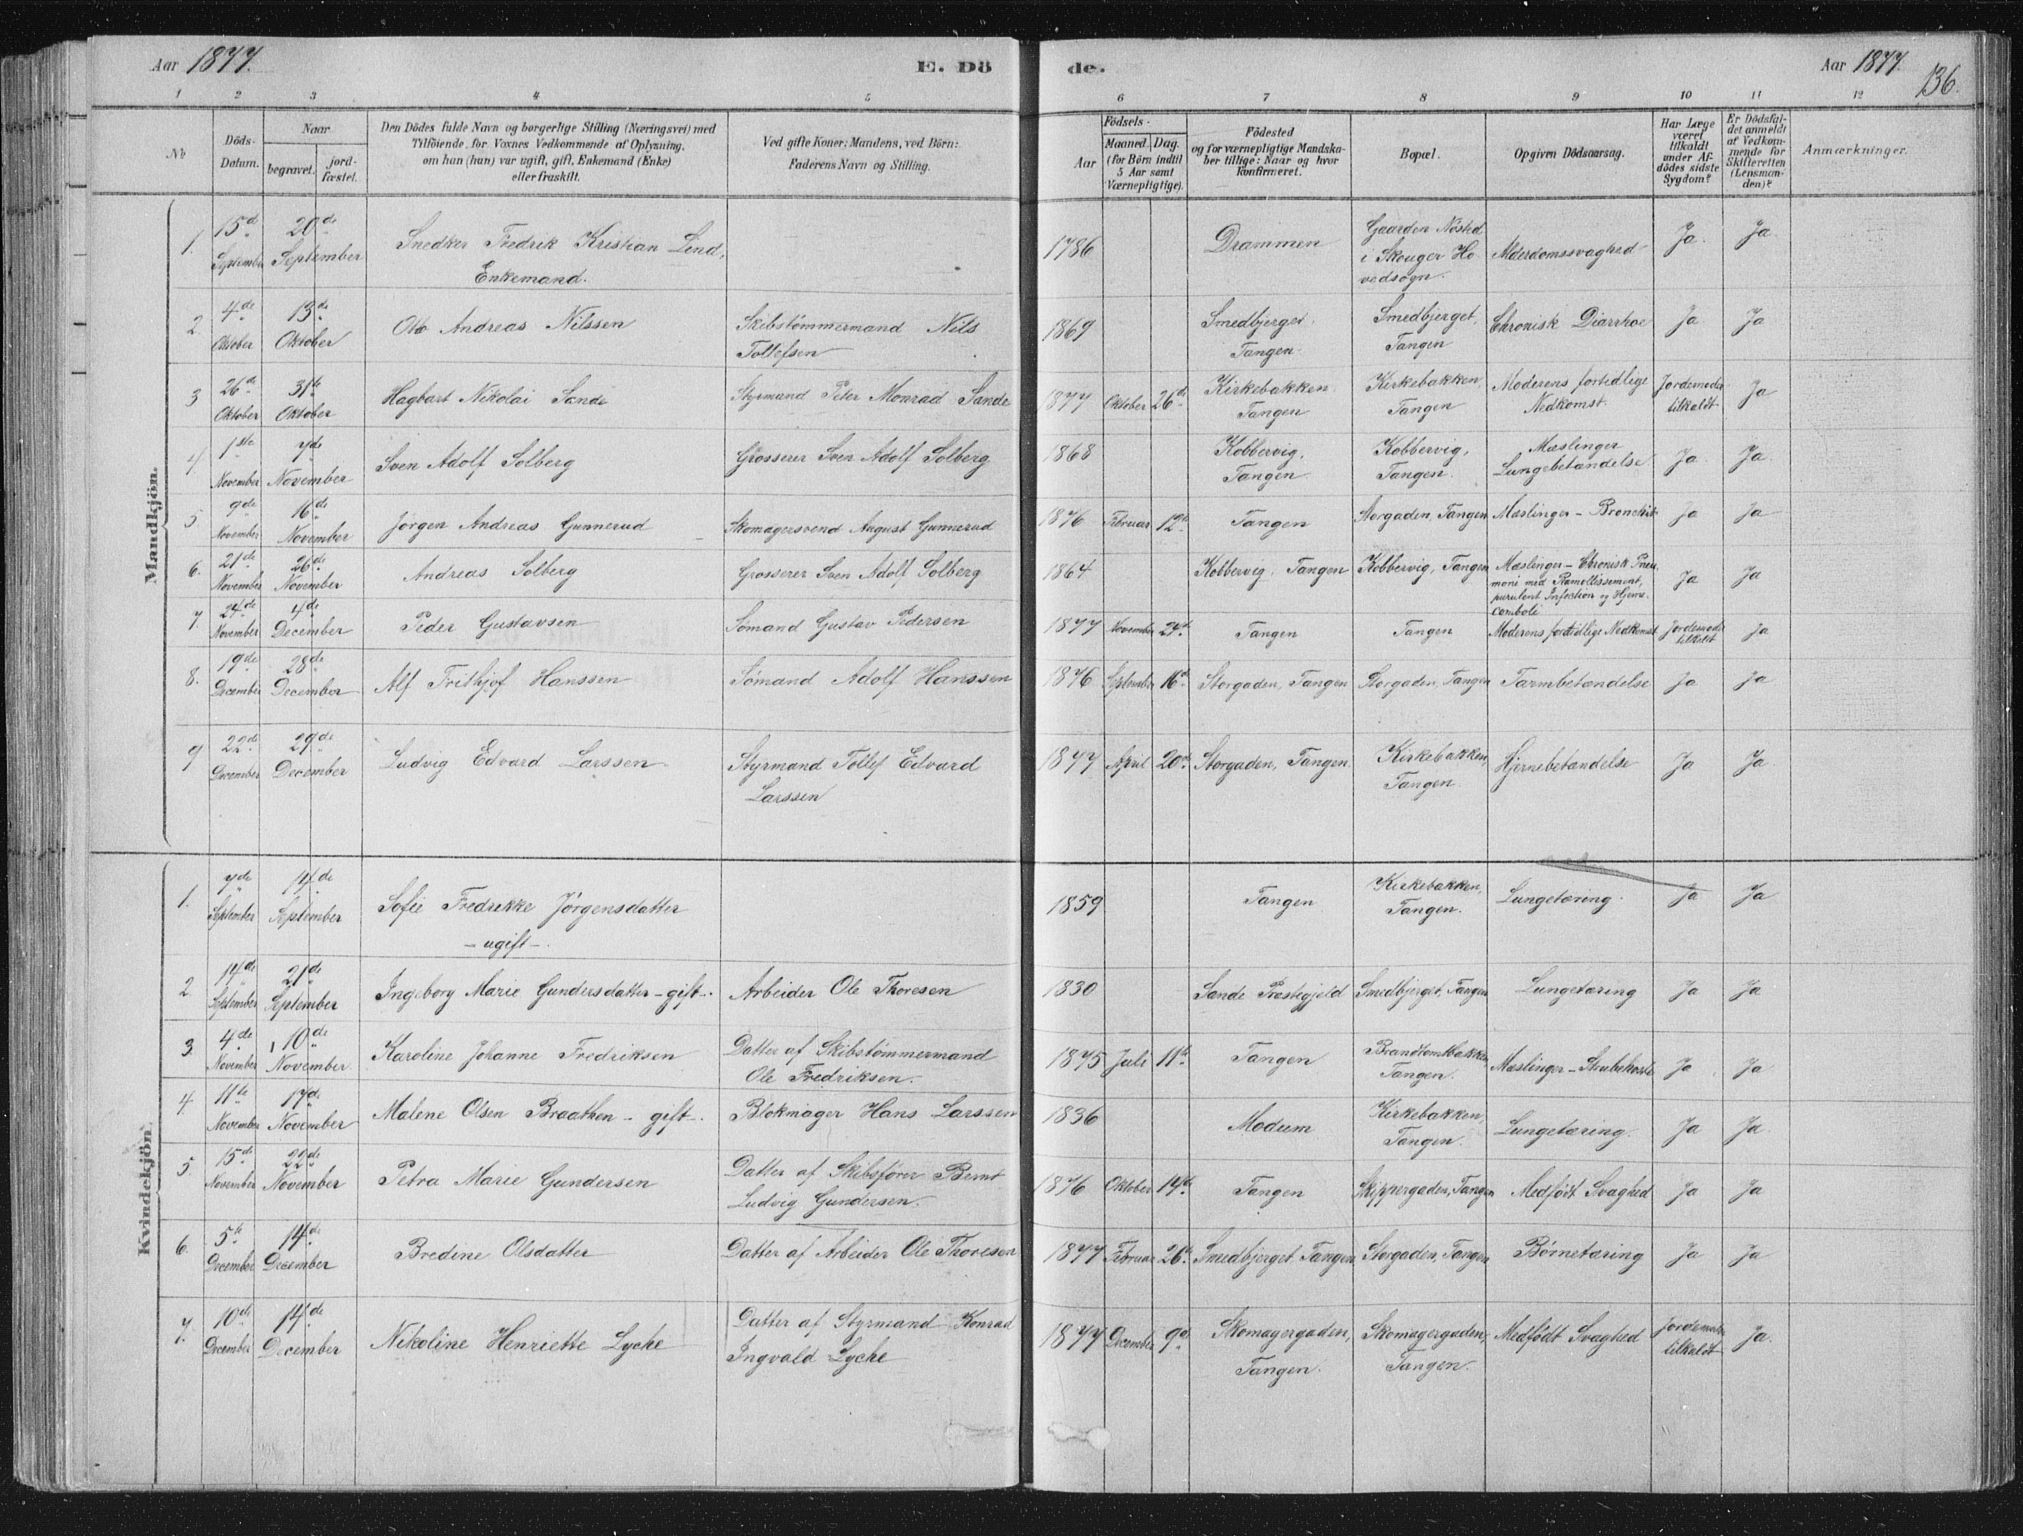 Aar 1877. E. Dö de. Aar 1877. 136.
1 2 3 4 5 6 7 8 9 10 11 12
No
Döds-Datum.
Naar
begravet.
jord-fæstet.
Den Dödes fulde Navn og borgerlige Stilling (Næringsvei) med
Tilföiende, for Voxnes Vedkommende af Oplysning,
om han (hun) var ugift, gift, Enkemand (Enke)
eller fraskilt.
Ved gifte Koner: Mandens, ved Börn:
Faderens Navn og Stilling.
Födsels-
Aar
Maaned. Dag.
(for Börn indtil
5 Aar samt
Værnepligtige).
Födested
og for værnepligtige Mandska-
ber tillige: Naar og hvor
konfirmeret.
Bopæl.
Opgiven Dödsaarsag.
Har Læge
været
tilkaldt
under Af-
dödes sidste
Sygdom?
Er Dödsfal-
det anmeldt
af Vedkom-
mende for
Skifteretten
(Lensman-
den)?
Anmærkninger.
Mandkjön.
1. 15de September 20de September Snedker Fredrik Kristian Lend, Enkemand. 1786 Drammen Gaarden Nøsted i Skouger Hovedsogn. Alderdomssvaghed Ja. Ja.
2. 4de Oktober 13de Oktober Olu Andreas Nilssen Skibstømmermand Nils Tollefsen 1869 Smedbjerget. Tangen. Smedbjerget, Tangen Chronisk Diarrhoe Ja. Ja
3 26de Oktober 31te Oktober Hagbart Nikolai Sande Styrmand Peter Monrad Sande 1877 Oktober 26de Kirkebakken Tangen Kirkebakken, Tangen Moderens fortidlige Nedkomst. Jordemoder tilkaldt Ja
4 1ste November 7de November Sven Adolf Solberg Grosserer Sven Adolf Solberg 1868 Kobbervig, Tangen Kobbervig, Tangen. Mæslinger Lungebetændelse Ja. Ja.
5 9de November 16de November Jørgen Andreas Gunnerud Skomagersvend August Gunnerud 1876 Februar 12te Tangen Storgaden, Tangen Mæslinger - Bronchit Ja Ja
6. 21de November 26de November Andreas Solberg Grosserer Sven Adolf Solberg 1864 Kobbervig, Tangen Kobbervig, Tangen Mæslinger - Chronisk Pneumoni med Ramollissement, purulent Infection og Hjerneemboli Ja Ja
7. 24de November 4de December Peder Gustavsen Sømand Gustav Pedersen 1877 November 24de Tangen Tangen Moderens fortidlige Nedkomst Jordemoder tilkaldt Ja
8. 19de December 28de December Alf Frithjof Hanssen Sømand Adolf Hanssen 1876 September 16de Storgaden, Tangen Storgaden, Tangen Tarmbetændelse Ja Ja
9 22de December 29de December Ludvig Edvard Larssen Styrmand Tollef Edvard Larssen 1877 April 20de Storgaden, Tangen Kirkebakken, Tangen. Hjernebetændelse Ja Ja.
Kvindekjön.
1. 7de September 14de September Sofie Fredrikke Jørgensdatter - ugift -. 1859 Tangen Kirkebakken, Tangen. Lungetæring. Ja Ja
2. 14de September 21de September Ingeborg Marie Gundersdatter - gift -. Arbeider Ole Thoresen 1830 Sande Præstegjeld Smedbjerget, Tangen Lungetæring Ja Ja
3. 4de November 10de November Karoline Johanne Fredriksen Datter af Skibstømmermand Ole Fredriksen. 1875 Juli 11te Tangen Brandtomtbakken Tangen. Mæslinger - Strubehoste Ja Ja
4. 11te November 17de November Malene Olsen Braathen - gift -. Blokmager Hans Larssen 1836 Modum Kirkebakken, Tangen. Lungetæring. Ja Ja.
5. 15de November 22de November Petra Marie Gundersen Datter af Skibsfører Bernt Ludvig Gundersen. 1876 Oktober 14de Tangen Skippergaden, Tangen Medfødt Svaghed Ja Ja
6. 5te December 14de December Bredine Olsdatter Datter af Arbeider Ole Thoresen 1877 Februar 26de Smedbjerget Tangen Storgaden, Tangen Børnetæring Ja Ja
7. 10de December 14de December Nikoline Henriette Lyche Datter af Styrmand Konrad Ingvald Lyche 1877 December 9de Skomagergaden, Tangen. Skomagergaden, Tangen. Medfødt Svaghed Jordemoder tilkaldt Ja.